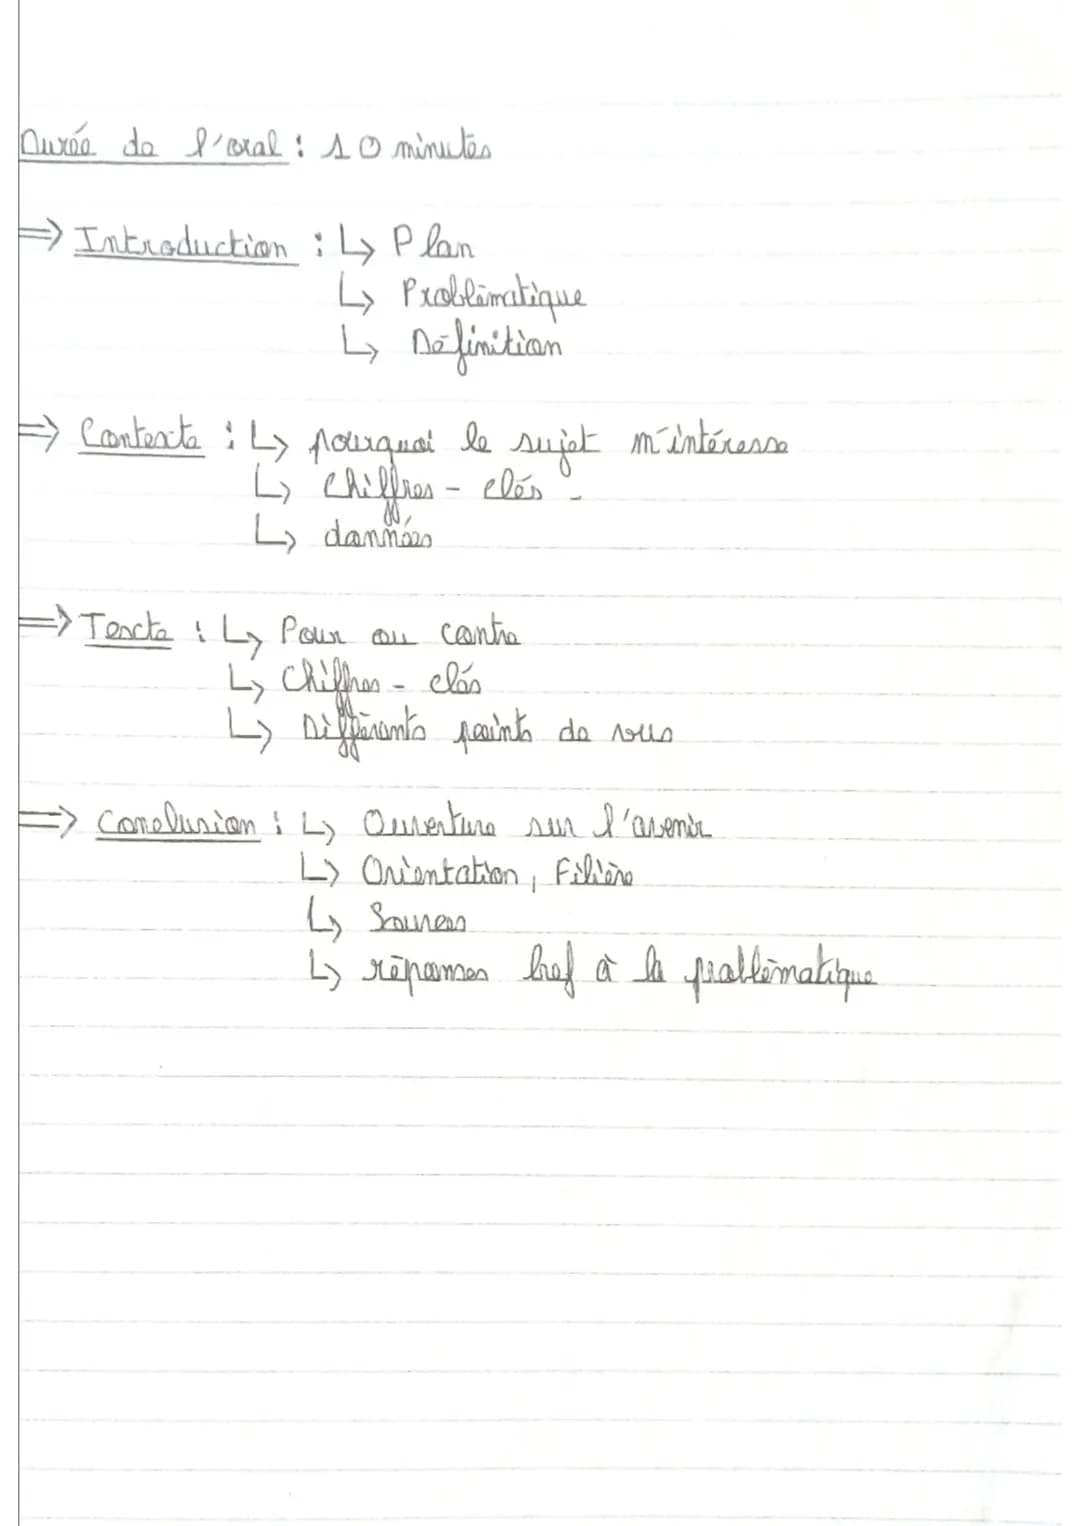 Durée de l'oral : 10 minutes
=> Introduction : ↳ Plan
↳ Problématique
↳ Définition
=> Contexte : ↳ pourquoi le sujet m'intéresse
↳ Chiffres - clés -
↳ données
=> Texte : ↳ Pour ou contre
↳ Chiffres - clés
↳ Différents points de vous
=> Conclusion : ↳ Ouverture sur l'avenir
↳ Orientation, Filière
↳ Sources
↳ réponses bref à la problématique